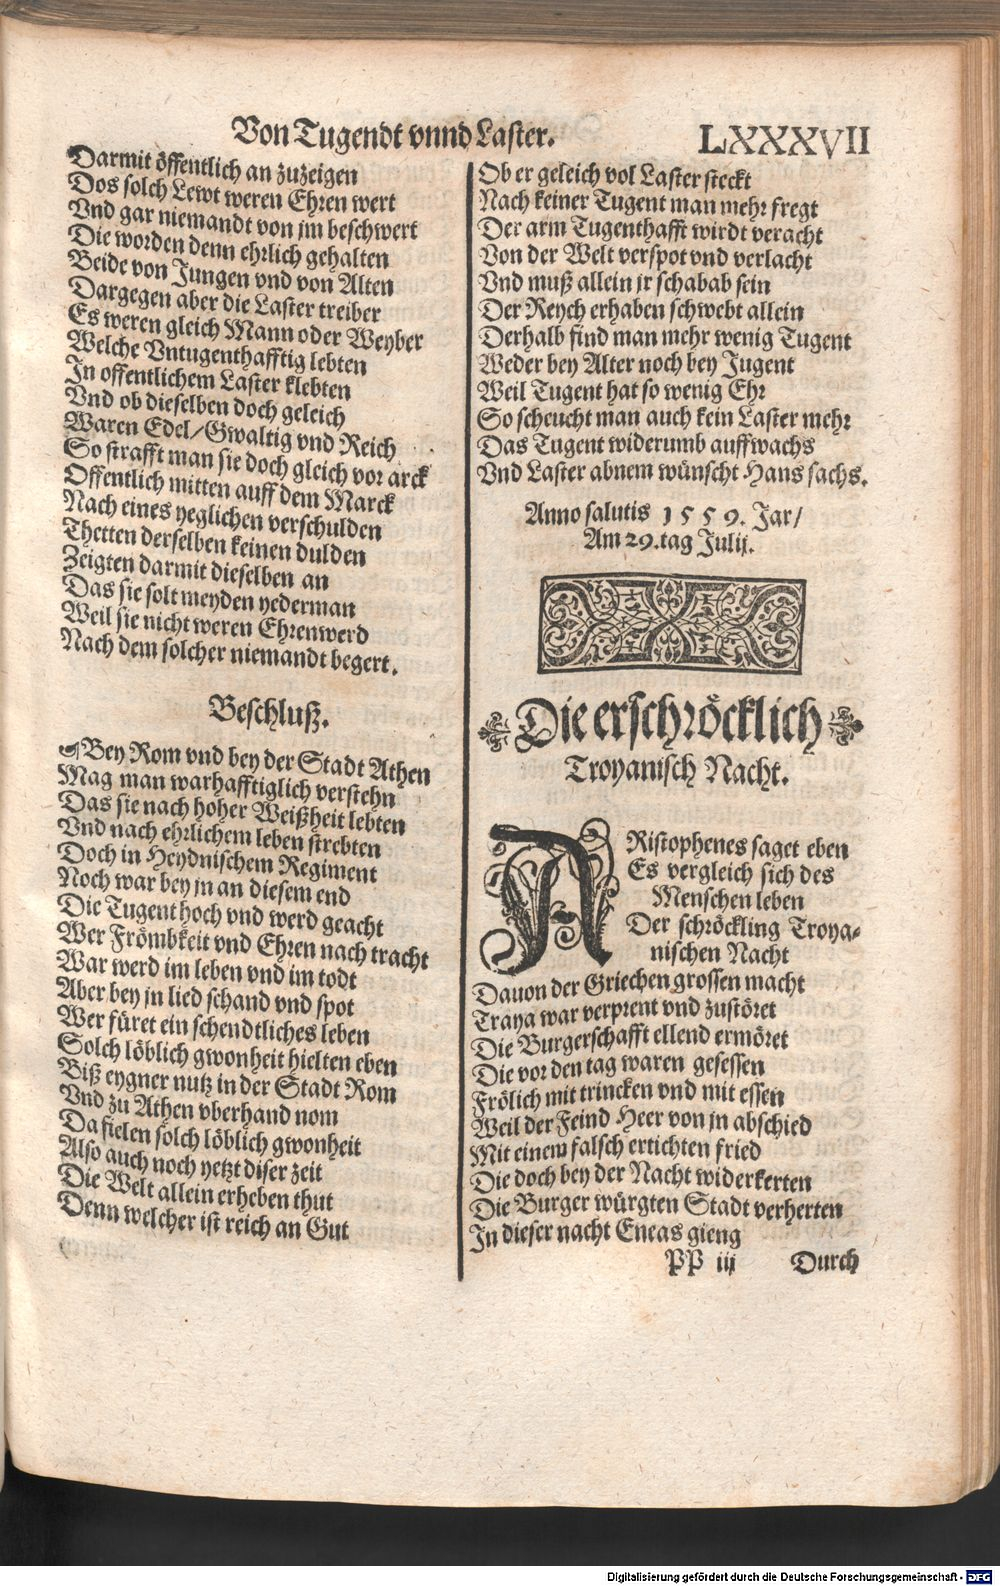 Von Tugendt vnnd Laster.
LXXXVII
Darmit öffentlich an zuzeigen
Dos solch Lewt weren Ehren wert
Vnd gar niemandt von jm beschwert
Die worden denn ehrlich gehalten
Beide von Jungen vnd von Alten
Dargegen aber die Laster treiber
Es weren gleich Mann oder Weyber
Welche Vntugenthafftig lebten
In offentlichem Laster klebten
Vnd ob dieselben doch geleich
Waren Edel/Gwaltig vnd Reich
So strafft man sie doch gleich vor arck
Offentlich mitten auff dem Marck
Nach eines yeglichen verschulden
Thetten derselben keinen dulden
Zeigten darmit dieselben an
Das sie solt meyden yederman
Weil sie nicht weren Ehrenwerd
Nach dem solcher niemandt begert.
Beschluß.
Bey Rom vnd bey der Stadt Athen
Mag man warhafftiglich verstehn
Das sie nach hoher Weißheit lebten
Vnd nach ehrlichem leben strebten
Doch in Heydnischem Regiment
Noch war bey jn an diesem end
Die Tugent hoch vnd werd geacht
Wer Frömbkeit vnd Ehren nach tracht
War werd im leben vnd im todt
Aber bey jn lied schand vnd spot
Wer füret ein schendtliches leben
Solch löblich gwonheit hielten eben
Biß eygner nutz in der Stadt Rom
Vnd zu Athen vberhand nom
Da fielen solch löblich gwonheit
Also auch noch yetzt diser zeit
Die Welt allein erheben thut
Denn welcher ist reich an Gut
Ob er geleich vol Laster steckt
Nach keiner Tugent man mehr fregt
Der arm Tugenthafft wirdt veracht
Von der Welt verspot vnd verlacht
Vnd muß allein jr schabab sein
Der Reych erhaben schwebt allein
Derhalb find man mehr wenig Tugent
Weder bey Alter noch bey Jugent
Weil Tugent hat so wenig Ehr
So scheucht man auch kein Laster mehr
Das Tugent widerumb auffwachs
Vnd Laster abnem wünscht Hans sachs.
Anno salutis 1559. Jar/
Am 29. tag Julij.
Die erschröcklich
Troyanisch Nacht.
ARistophenes saget eben
Es vergleich sich des
Menschen leben
Der schröckling Troya-
nischen Nacht
Dauon der Griechen grossen macht
Traya war verprent vnd zustöret
Die Burgerschafft ellend ermöret
Die vor den tag waren gesessen
Frölich mit trincken vnd mit essen
Weil der Feind Heer von jn abschied
Mit einem falsch ertichten fried
Die doch bey der Nacht widerkerten
Die Burger würgten Stadt verherten
In dieser nacht Eneas gieng
PP iij
Durch
Digitalisierung gefördert durch die Deutsche Forschungsgemeinschaft - DFG